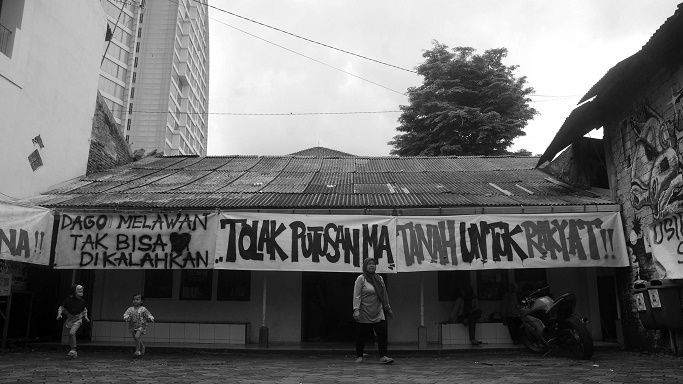 NA!!
DAGO MELAWAN
TAK BISA
DIKALAHKAN
..TOLAK PUTUSAN MA
TANAH UNTUK RAKYAT!!